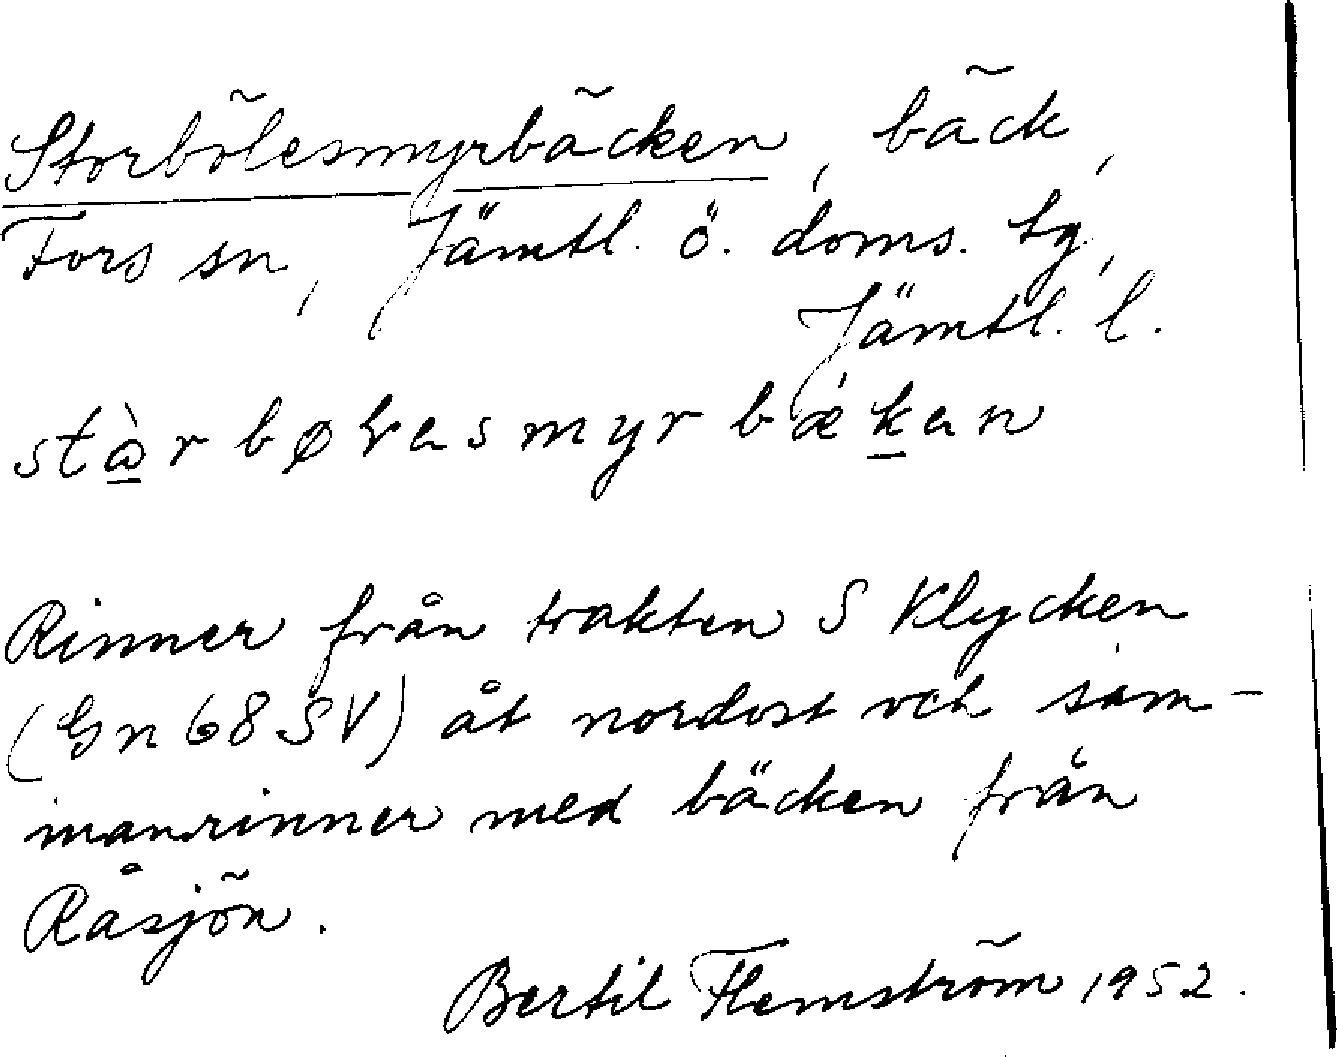 Storbölesmyrbäcken, bäck,
Fors sn, Jämtl. ö. doms. tg,
Jämtl. l.
Rinner från trakten S Klycken
(Gn 68 SV) åt nordost och sam-
manrinner med bäcken från
Råsjön.
Bertil Flemström 1952.